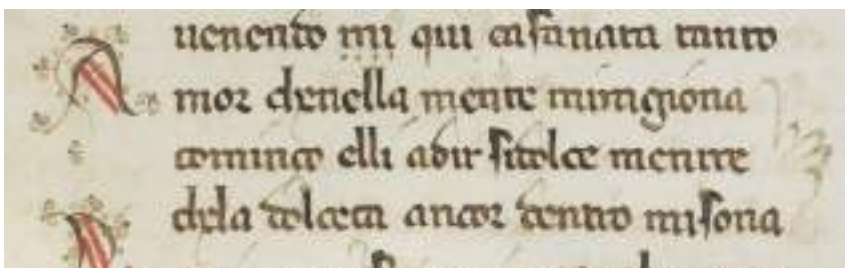 uenendo mi qui casanara tanto
A mor chenella mente mi ragiona
cominco elli adir sidolce mente
chela dolceca ancor dentro misona